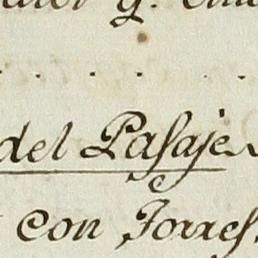 del Pasaje
con Torres